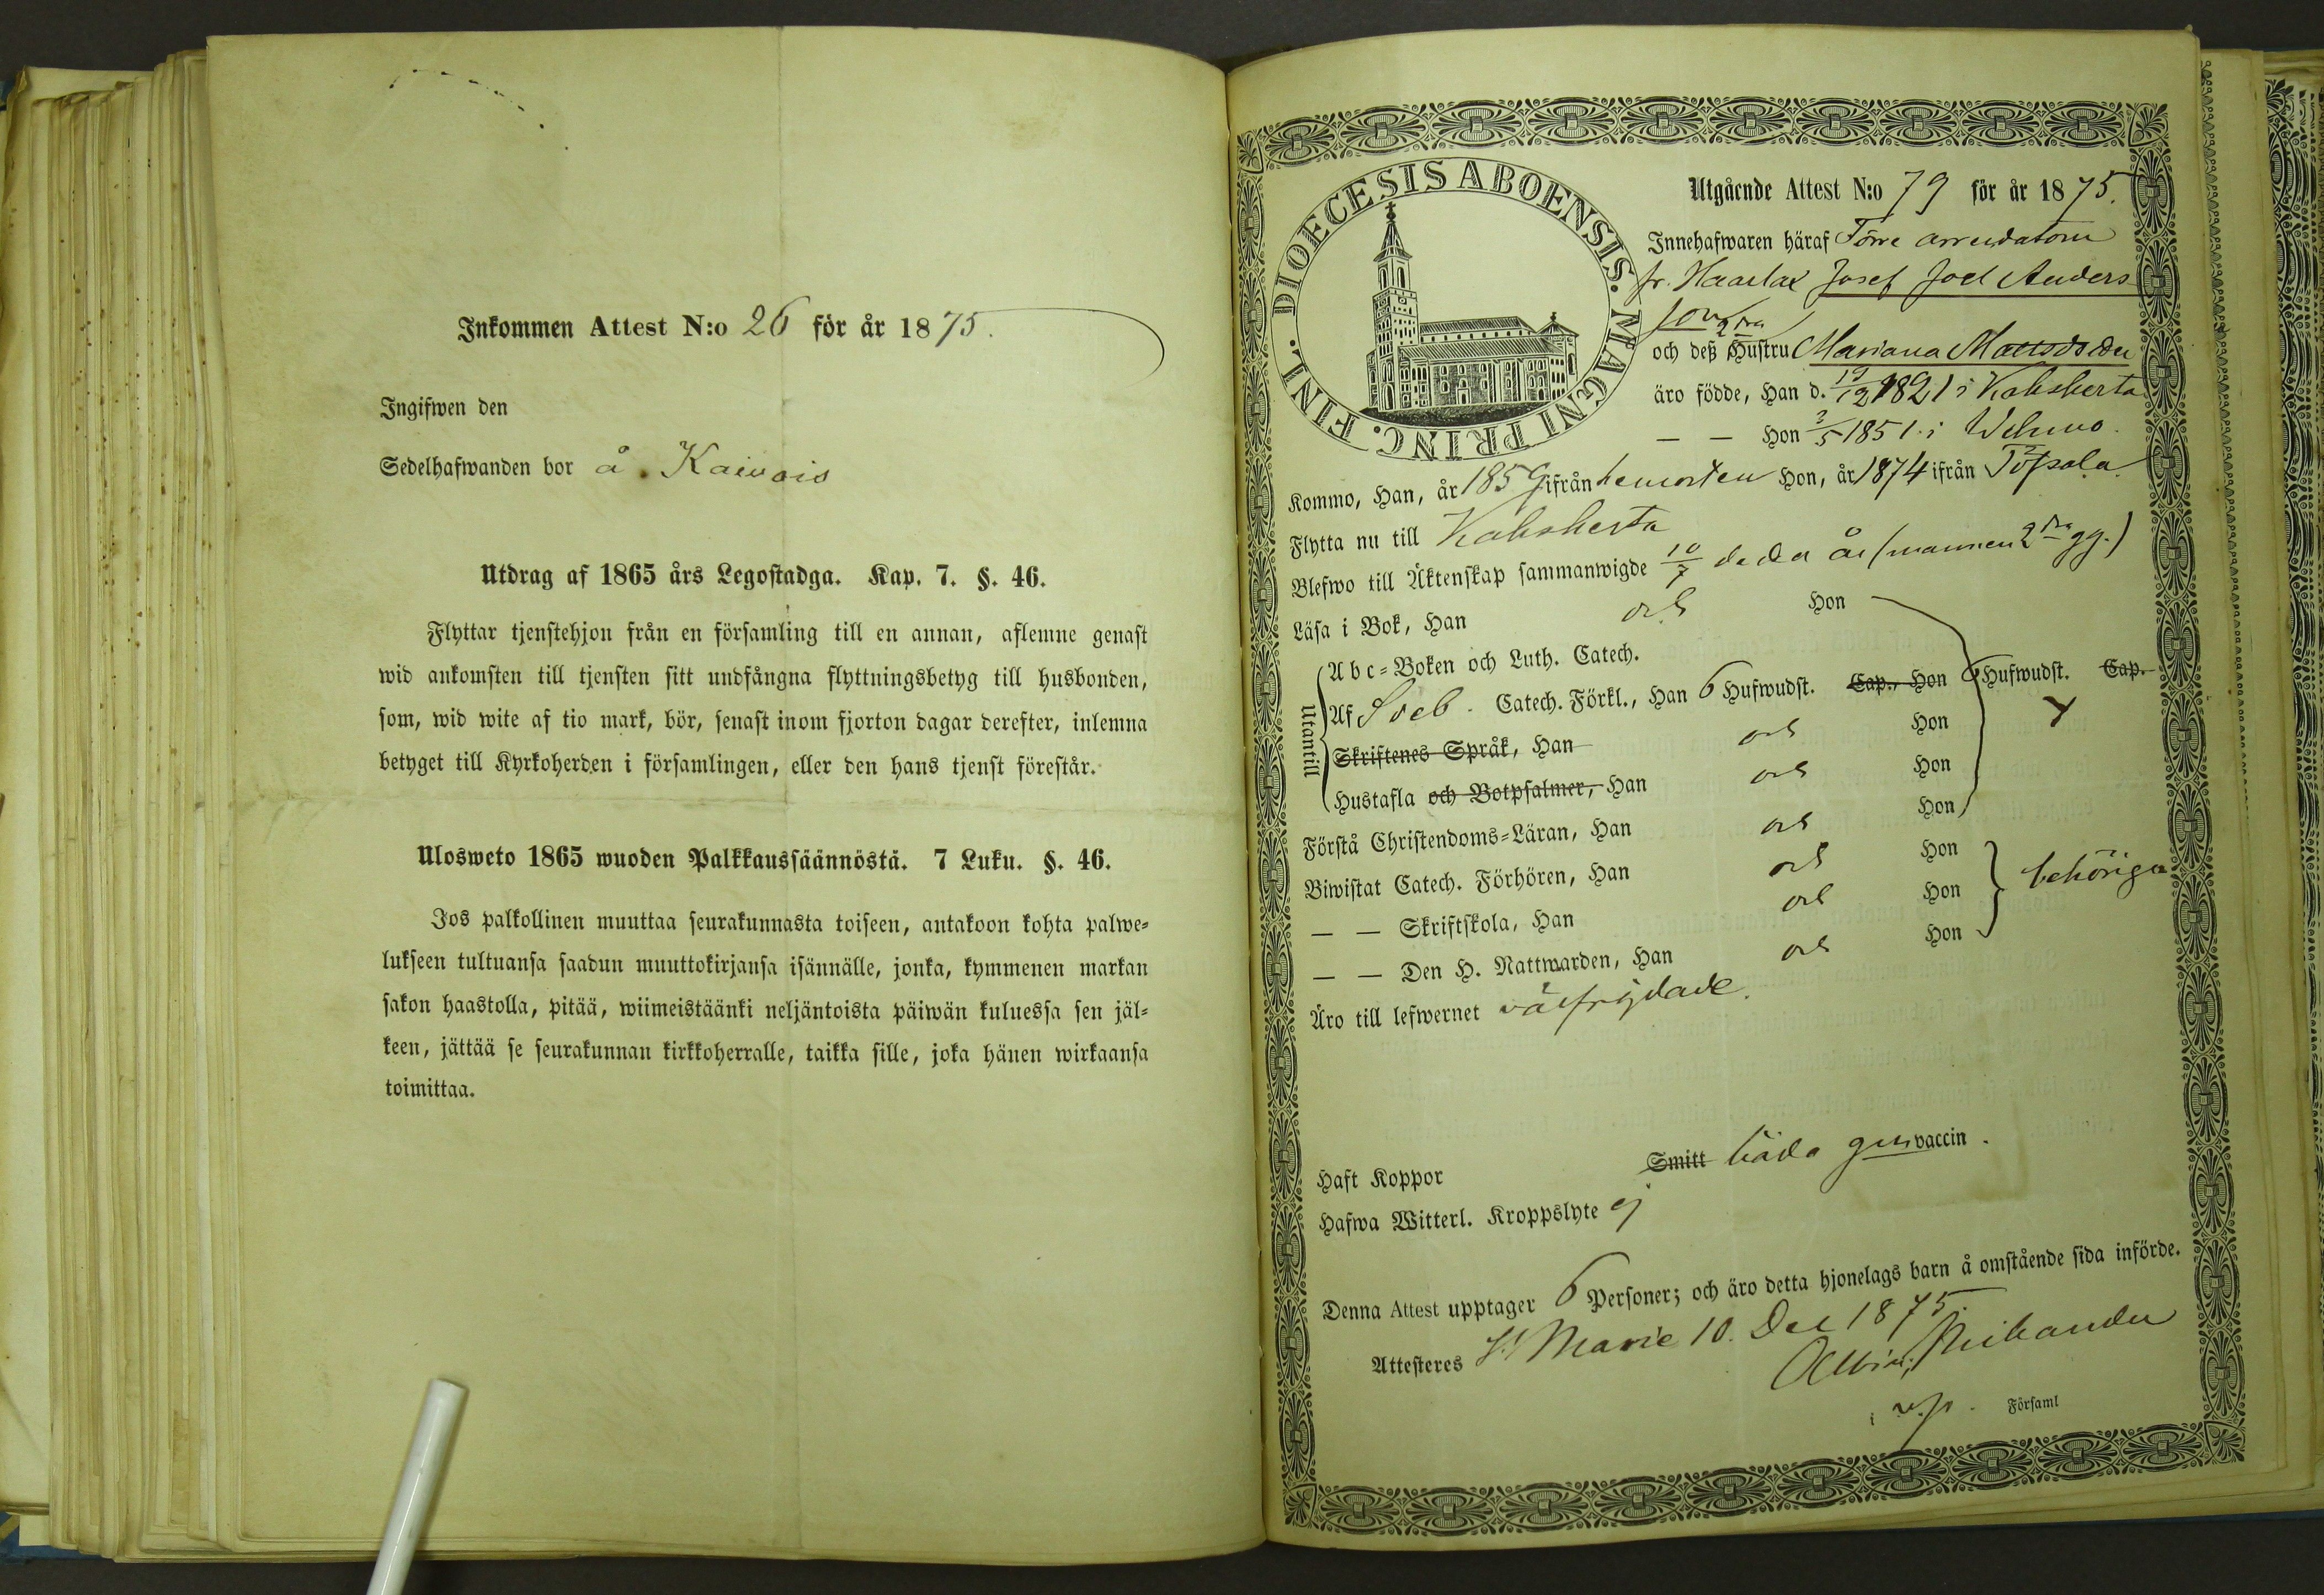 Inkommen Attest N:o 26 för år 1875.
Ingifwen den
Sedelhafwanden bor å Kaivois
Utdrag af 1865 års Legostadga. Kap. 7. §. 46.
Flyttar tjenstehjon från en församling till en annan, aflemne genast
wid ankomsten till tjensten sitt undfångna flyttningsbetyg till husbonden,
som, wid wite af tio mark, bör, senast inom fjorton dagar derefter, inlemna
betyget till Kyrkoherden i församlingen, eller den hans tjenst förestår.
Ulosweto 1865 wuoden Palkkaussäännöstä. 7 Luku. §. 46.
Jos palkollinen muuttaa seurakunnasta toiseen, antakoon kohta palwe=
lukseen tultuansa saadun muuttokirjansa isännälle, jonka, kymmenen markan
sakon haastolla, pitää, wiimeistäänki neljäntoista päiwän kuluessa sen jäl=
keen, jättää se seurakunnan kirkkoherralle, taikka sille, joka hänen wirkaansa
toimittaa.
DIOECESIS ABOENSIS. MAGNI PRINC. FINL.
Utgående Attest N:o 79 för år 1875.
Innehafwaren häraf Förre arrendatorn
fr. Haarlax Josef Joel Anders
son
och deß 2dra Hustru Mariana Mattsdoter
äro födde, Han d. 19/12 1821 i Kakskerta
— — Hon 3/5 1851 i Wehmo.
Kommo, Han, år 1859 ifrån hemorten Hon, år 1874 ifrån Töfsala
Flytta nu till Kakskerta
Blefwo till Äktenskap sammanwigde 10/7 dedea år (mannen 2dra gg.)
Läsa i Bok, Han och Hon
Utantill
Abc=Boken och Luth. Catech.
Af Sveb. Catech. Förkl., Han 6 Hufwudst. Cap., Hon 6 Hufwudst. Cap.
Skriftenes Språk, Han och Hon
Hustafla och Botpsalmer, Han och Hon
Förstå Christendoms=Läran, Han och Hon
Biwistat Catech. Förhören, Han och Hon
— — Skriftskola, Han och Hon behörigen
— — Den H. Nattwarden, Han och Hon
Äro till lefwernet välfrejdade.
Haft Koppor Smitt båda gm vaccin.
Hafwa Witterl. Kroppslyte ej
Denna Attest upptager 6 Personer; och äro detta hjonelags barn å omstående sida införde.
Attesteres St Marie 10. Dec 1875.
i v.p. Församl